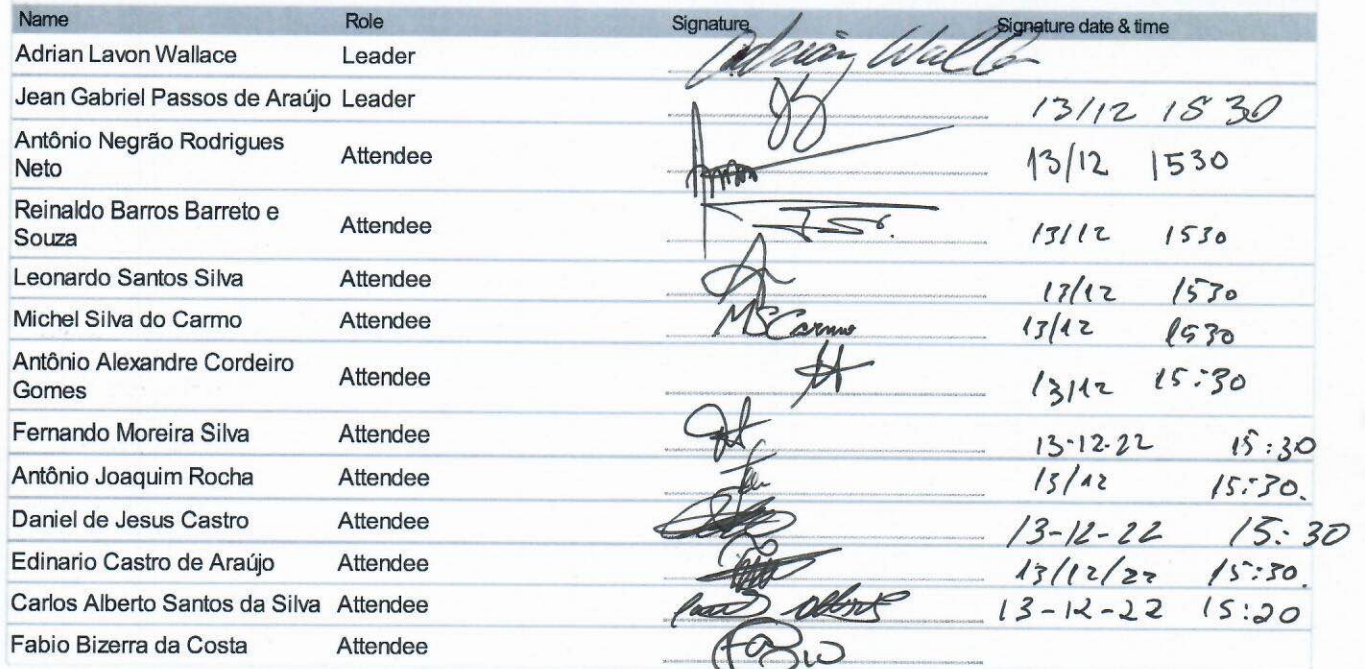 Name Role Signature Signature date & time
Adrian Lavon Wallace Leader Adrian Wallace
Jean Gabriel Passos de Araújo Leader 13/12 15 30
Antônio Negrão Rodrigues
Neto Attendee 13/12 1530
Reinaldo Barros Barreto e
Souza Attendee 13/12 1530
Leonardo Santos Silva Attendee 13/12 1530
Michel Silva do Carmo Attendee MSCarmo 13/12 1530
Antônio Alexandre Cordeiro
Gomes Attendee 13/12 15:30
Fernando Moreira Silva Attendee 13-12-22 15:30
Antônio Joaquim Rocha Attendee 13/12 15:30.
Daniel de Jesus Castro Attendee 13-12-22 15:30
Edinario Castro de Araújo Attendee 13/12/22 15:30.
Carlos Alberto Santos da Silva Attendee 13-12-22 15:20
Fabio Bizerra da Costa Attendee FaBio